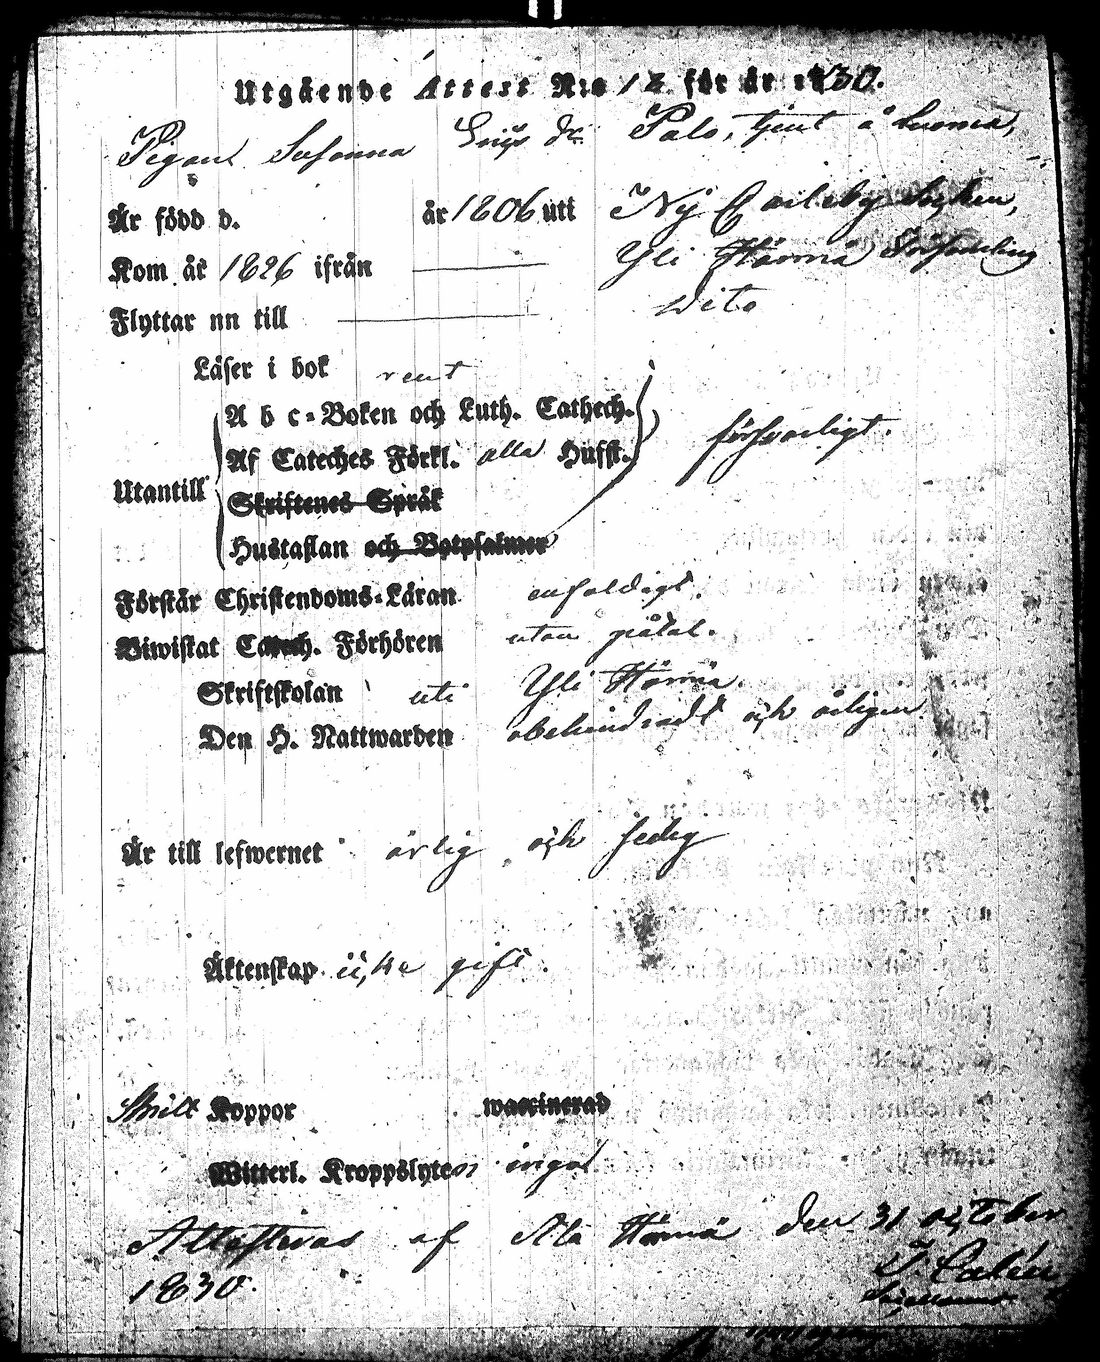 Utgående Attest N:o 12 för år 1830.
Pigan Susanna Eriks dr Palo, tjent å Luoma,
Är född d. år 1806 uti Ny Carleby Socken,
Kom år 1826 ifrån Yli Härmä Församling
Flyttar nn till dito
Läser i bok rent
A b c-Boken och Luth. Cathech.
Af Cateches Förkl. alla Husst. försvarligt.
Utantill
Skriftenes Språk
Hustaflan och Botpsalmer
Förstår Christendoms-Läran enfaldigt.
Biwistat Catech. Förhören utan påtal.
Skriftskolan uti Yli Härmä.
Den H. Nattwarden obehindradt och årligen.
Är till lefwernet ärlig och sedig
Äktenskap icke gift.
Koppor waccinerad
Witterl. Kroppslyten inga
Attesteras af Ala Härmä den 31 october
1830.